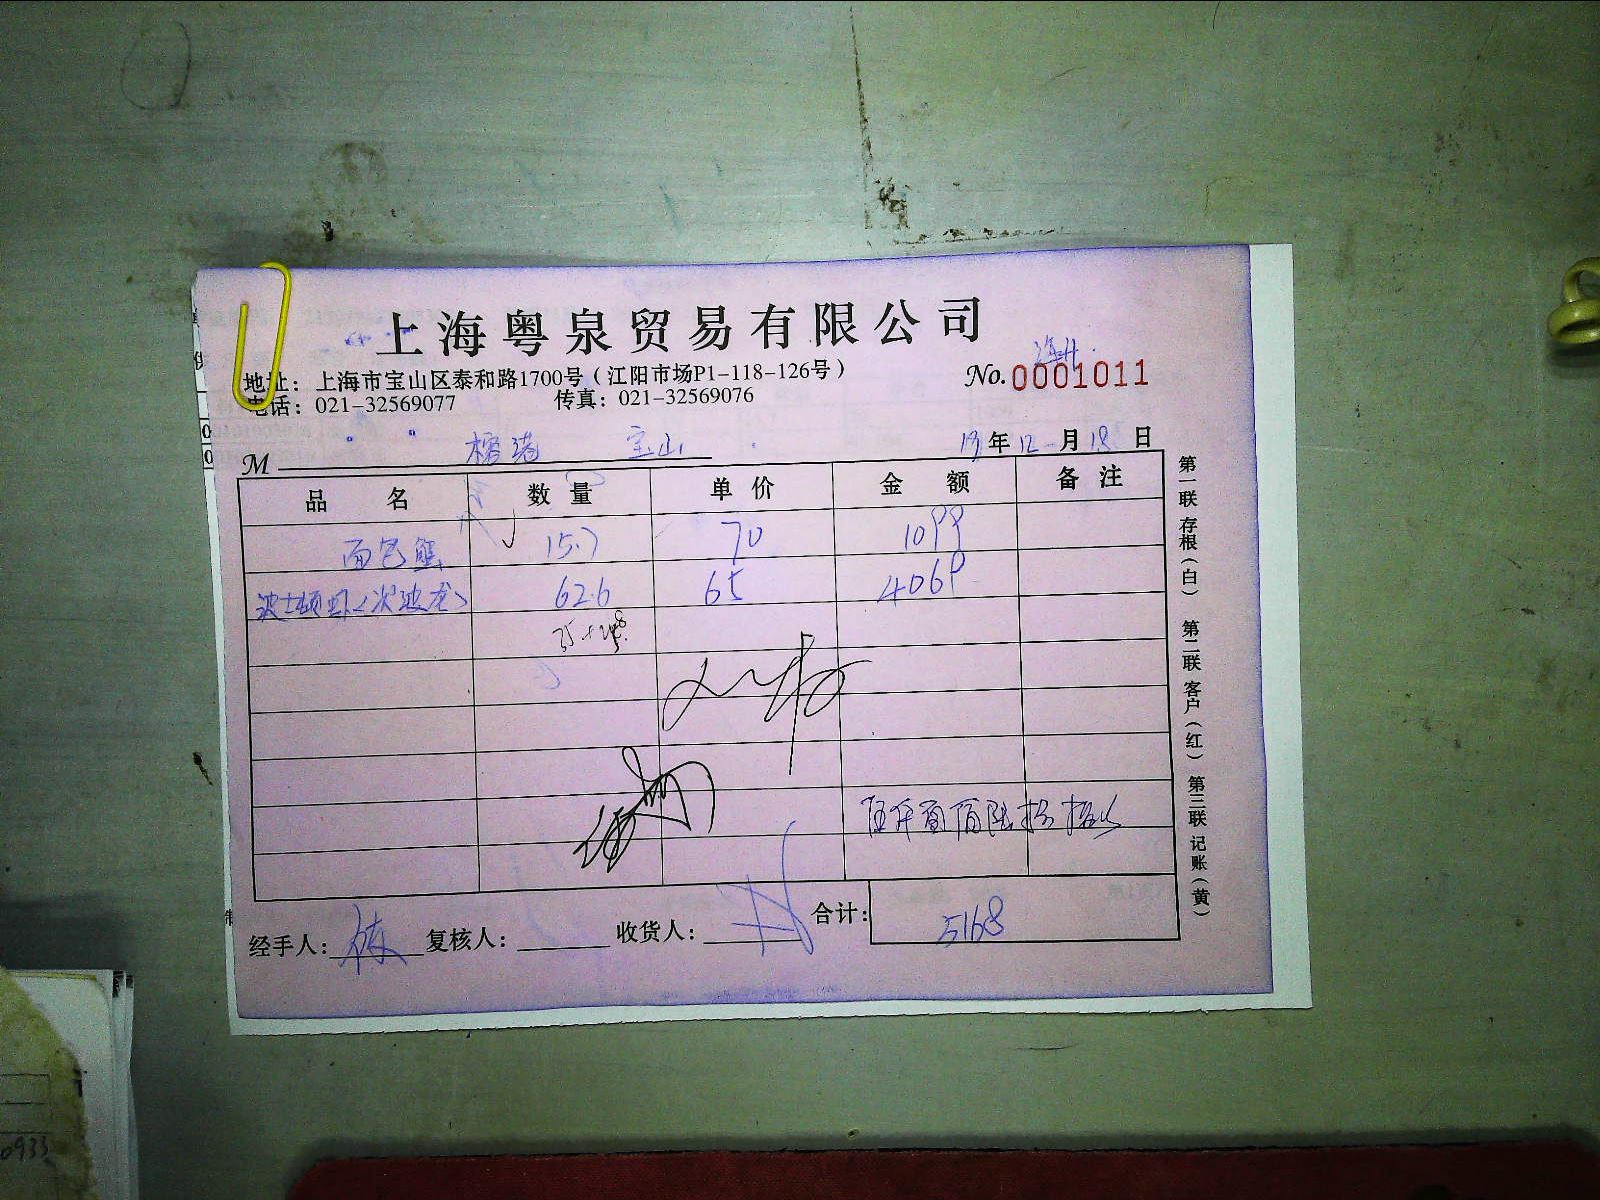 上海粤泉贸易有限公司
地址：上海市宝山区泰和路1700号（江阳市场P1-118-126号）
No.0001011
电话：021-32569077 传真：021-32569076
M 榕港 宝山 13年12月18日
品名 数量 单价 金额 备注
面包蟹 15.7 70 1099
波士顿 62.6 65 4069
合计：5168
经手人： 复核人： 收货人：
第一联 存根（白） 第二联 客户（红） 第三联 记账（黄）
0933